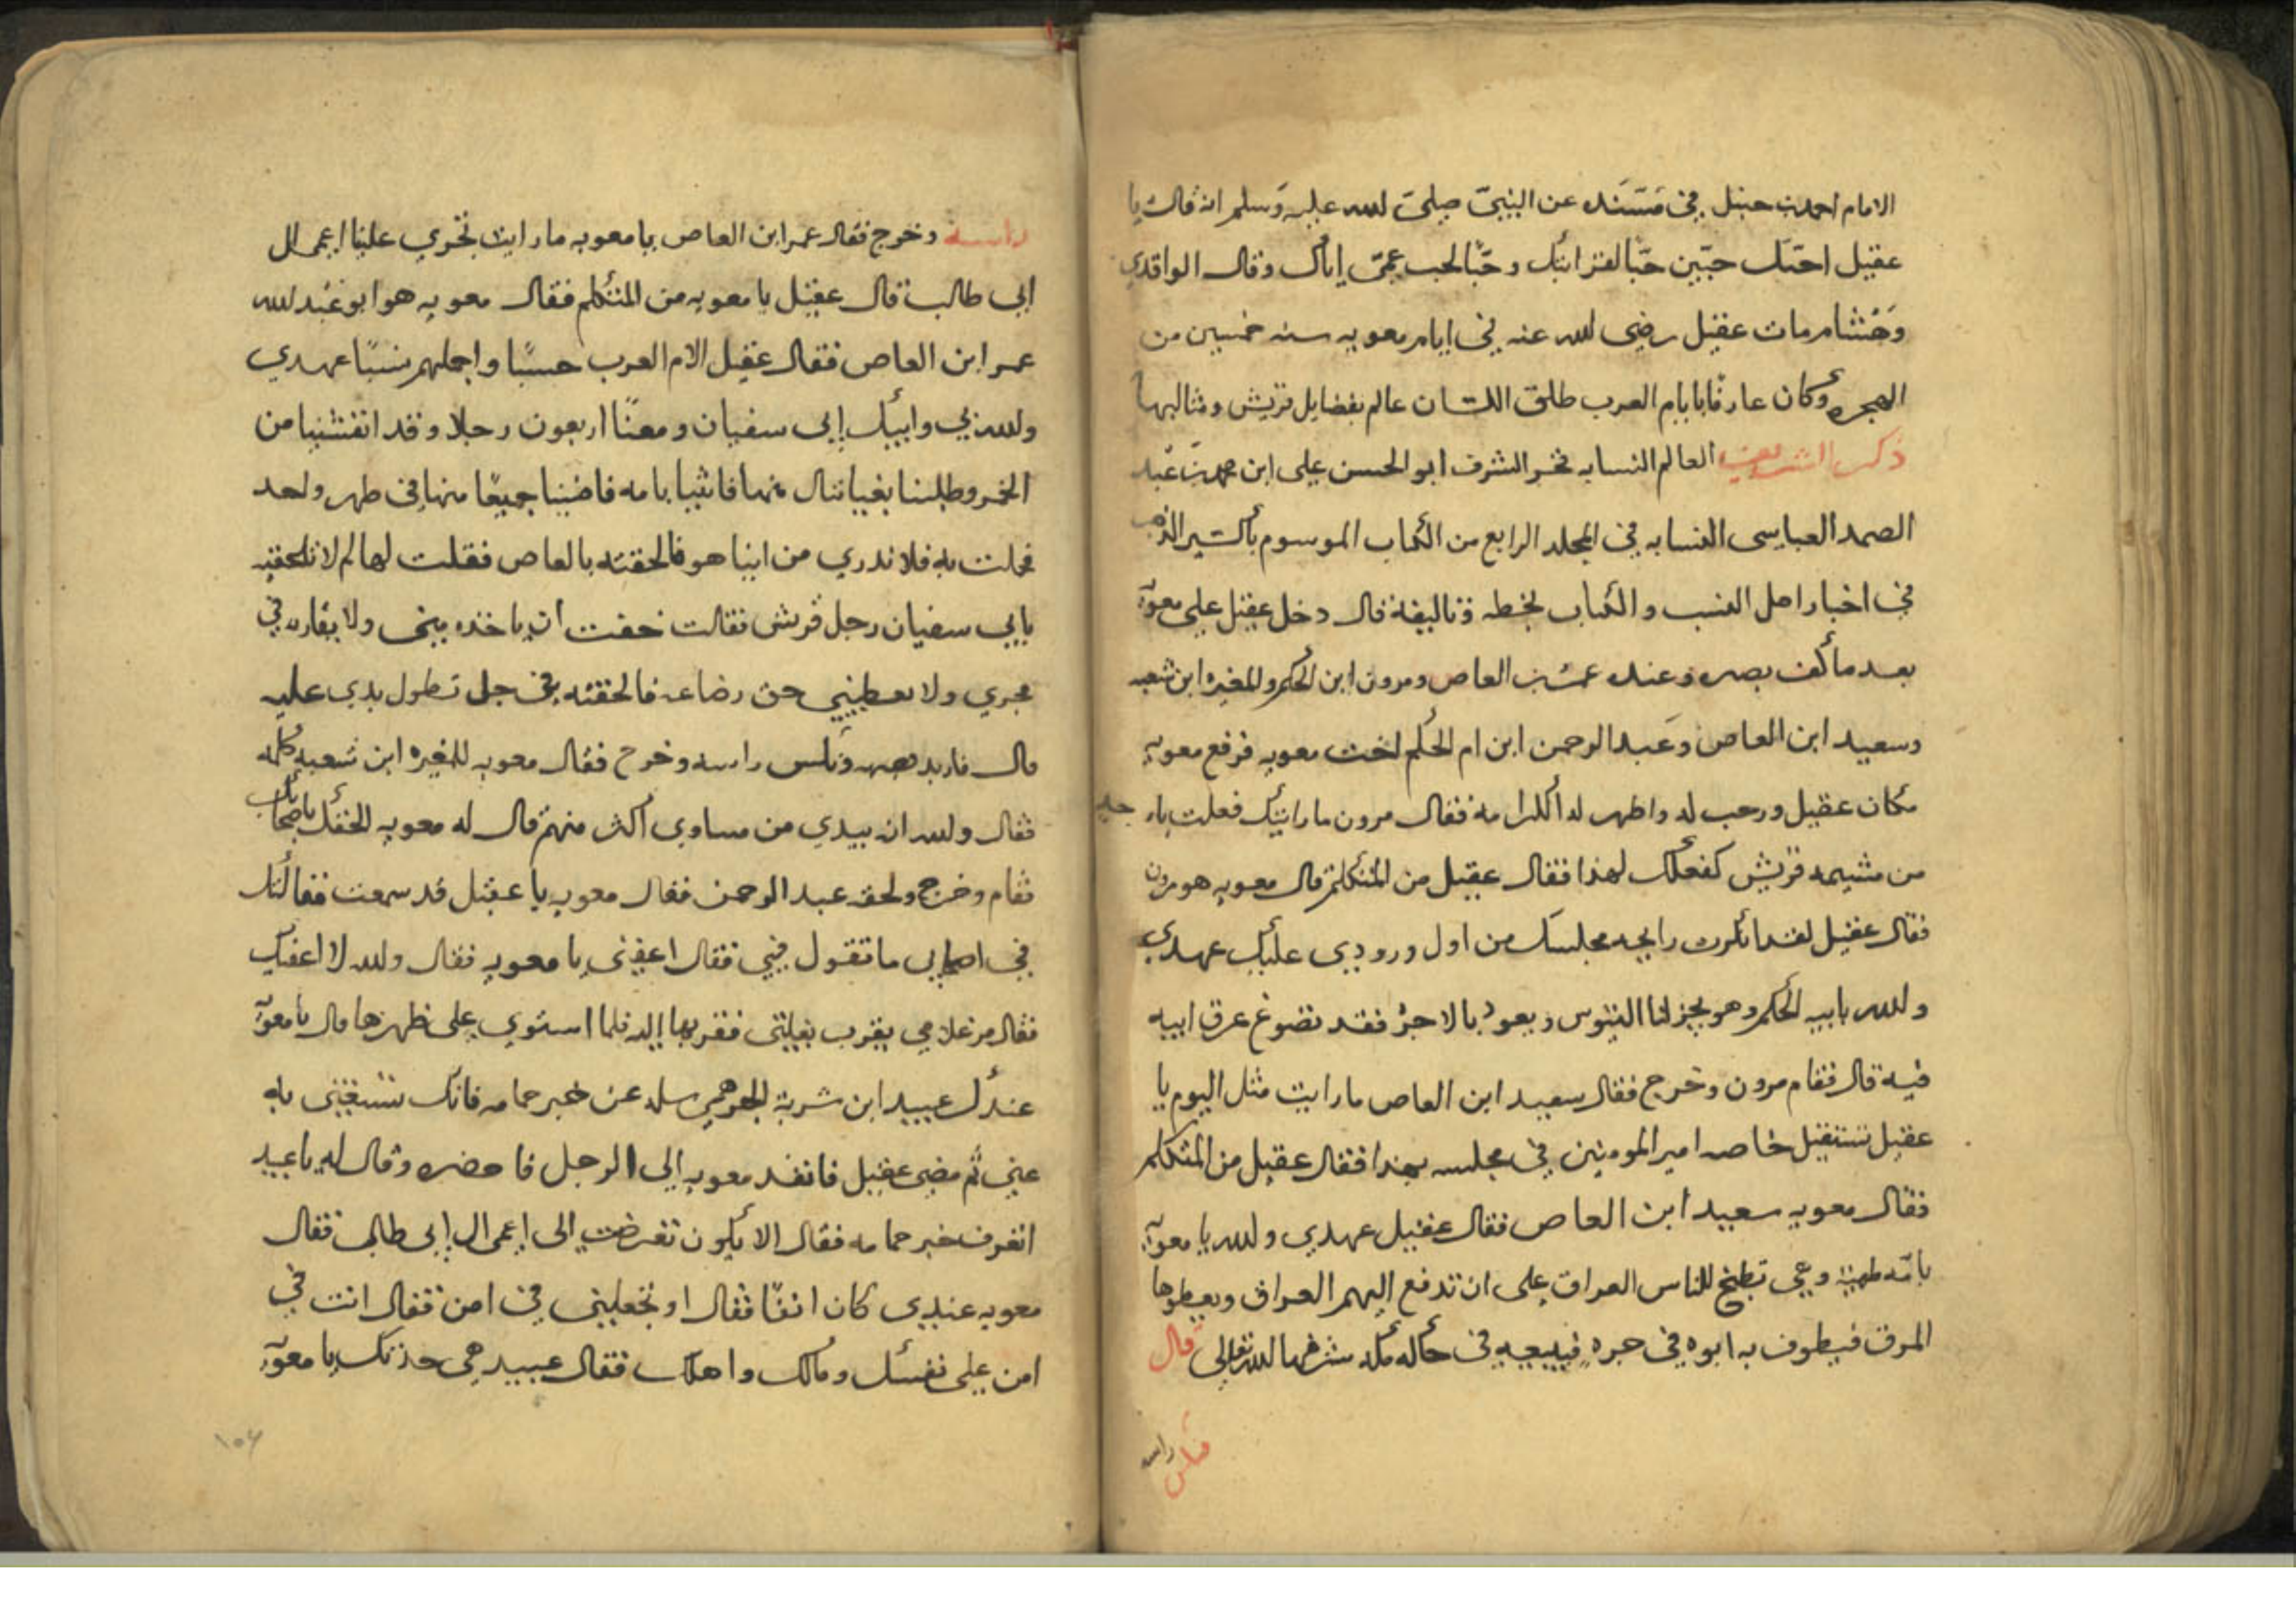 الامام احمد بن حنبل في مسنده عن النبي صلى الله عليه وسلم انه قال يا
عقيل احبك حبين حبا لقرابتك وحبا لحب عمي اياك وقال الواقدي
وهشام مات عقيل رضي الله عنه في ايام معويه سنه خمسين من
الهجره وكان عارفا بايام العرب طلق اللسان عالم بفضايل قريش ومثالبها
ذكر الشريف العالم النسابه فخر الشرف ابو الحسن علي ابن محمد بن عبد
الصمد العباسي النسابه في المجلد الرابع من الكتاب الموسوم بأكسير الذهب
في اخبار اهل النسب والكتاب بخطه وتاليفه قال دخل عقيل على معويه
بعد ما كف بصره وعنده عمر بن العاص ومرون ابن الحكم والمغيره ابن شعبه
وسعيد ابن العاص وعبد الرحمن ابن ام الحكم اخت معويه فرفع معويه
مكان عقيل ورحب له واظهر له اكرامه فقال مرون ما رايتك فعلت باحد جليه
من مشيمه قريش كفعلك لهذا فقال عقيل من المتكلم قال معويه هو مرون
فقال عقيل لقد انكرت رايحه مجلسك من اول ورودي عليك عهدي
والله بابيه الحكم وهو يجز لنا التيوس ويعود بالاجر فقد تضوع عرق ابيه
فيه قال فقام مرون وخرج فقال سعيد ابن العاص ما رايت مثل اليوم يا
عقيل تستقبل خاصه امير المومنين في مجلسه بهذا فقال عقيل من المتكلم
فقال معويه سعيد ابن العاص فقال عقيل عهدي والله يا معويه
بامه وهي تطبخ للناس العراق على ان تدفع اليهم العراق ويعطوها
المرق فيطوف به ابوه في جره فيبيعه في مكه شرفها الله تعالى قال
فنكس راسه
راسه وخرج فقال عمر ابن العاص يا معويه ما رايت تجري علينا اعمى ال
ابي طالب قال عقيل يا معويه من المتكلم فقال معويه هو ابو عبد الله
عمر ابن العاص فقال عقيل الام العرب حسبا واجملهم نسبا عهدي
والله بي وابيك ابي سفيان ومعنا اربعون رجلا وقد انتشينا من
الخمر وطلبنا بغيا ننال منها فاتينا بامه فاضينا جميعا منها في طهر واحد
فحملت به فلا ندري من اينا هو فالحقته بالعاص فقلت لها لم لا تلحقيه
بابي سفيان رجل قريش فقالت خفت ان ياخذه مني ولا يقاره في
حجري ولا يعطيني حق رضاعه فالحقته برجل تطول يدي عليه
قال فاربد وجهه ونكس راسه وخرج فقال معويه للمغيره ابن شعبه كلمه
فقال والله ان بيدي من مساوي اكثر منهم قال له معويه الحقك باصحابك
فقام وخرج ولحقه عبد الرحمن فقال معويه يا عقيل قد سمعت مقالتك
في اصحابي ما تقول في فقال اعفني يا معويه فقال والله لا اعفيك
فقال مر غلامي يقرب بغلتي فقربها اليه فلما استوي على ظهرها قال يا معويه
عندك عبيد ابن شرية الجرهمي سله عن خبر حمامه فانك تستغني به
عني ثم مضى عقيل فانفد معويه الى الرجل فاحضره وقال له يا عبيد
اتعرف خبر حمامه فقال الا يكون تعرضت الى اعمى ال ابي طالب فقال
معويه عندي كان انفا فقال او تجعلني في امن فقال انت في
امن على نفسك ومالك واهلك فقال عبيد هي جدتك يا معويه
١٠٤